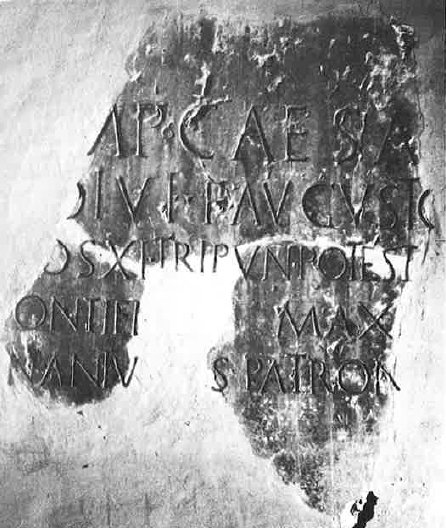 AP·CAESA
DIVI·F·AVGVSTO
OS XI TRIBVNI POTEST
ONTIFI MAX
NANIV S PATRON